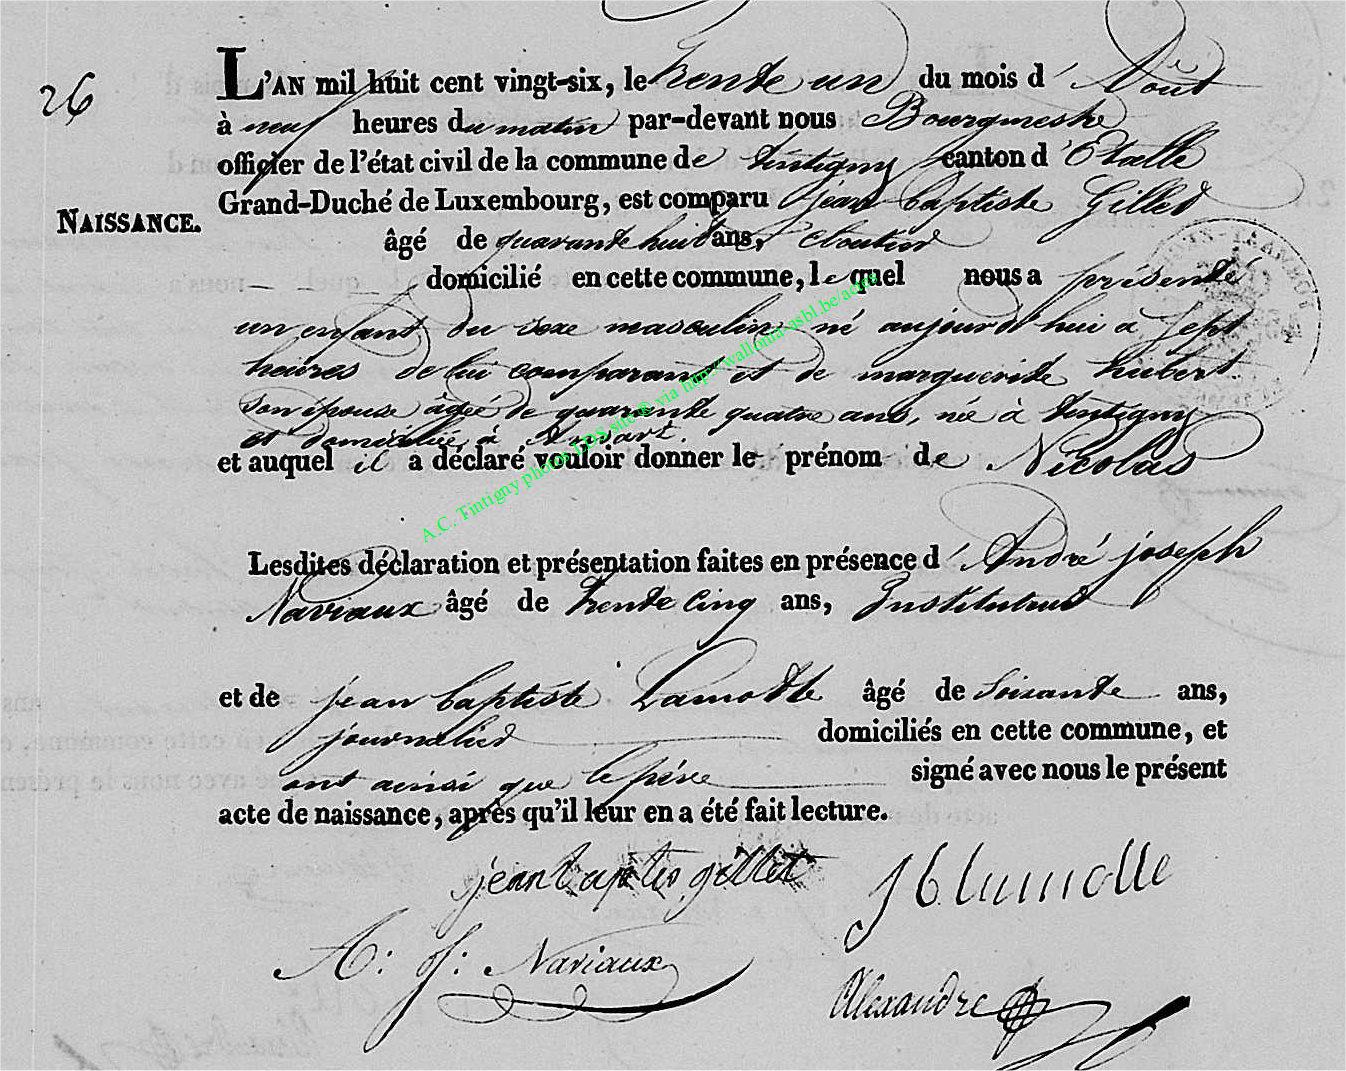 26
L'AN mil huit cent vingt-six, le trente un du mois d' Août
à neuf heures du matin par-devant nous Bourgmestre
officier de l'état civil de la commune de tintigny canton d'Etalle
Grand-Duché de Luxembourg, est comparu jean baptiste Gillet
NAISSANCE.
âgé de quarante huit ans, cloutier
domicilié en cette commune, le quel nous a présenté
un enfant du sexe masculin né aujourd'hui a sept
heures de lui comparant et de marguerite hubert
son épouse âgée de quarante quatre ans, née à tintigny
et domiciliée à Ansart.
et auquel il a déclaré vouloir donner le prénom de Nicolas
A.C. Tintigny photos LDS site® via http://wallonia-asbl.be/actes
Lesdites déclaration et présentation faites en présence d' André joseph
Naviaux âgé de trente cinq ans, Instituteur
et de jean baptiste Lamotte âgé de Soixante ans,
journalier domiciliés en cette commune, et
ont ainsi que le père signé avec nous le présent
acte de naissance, après qu'il leur en a été fait lecture.
jean baptis gillet
J b lamotte
A: J: Naviaux
Alexandre